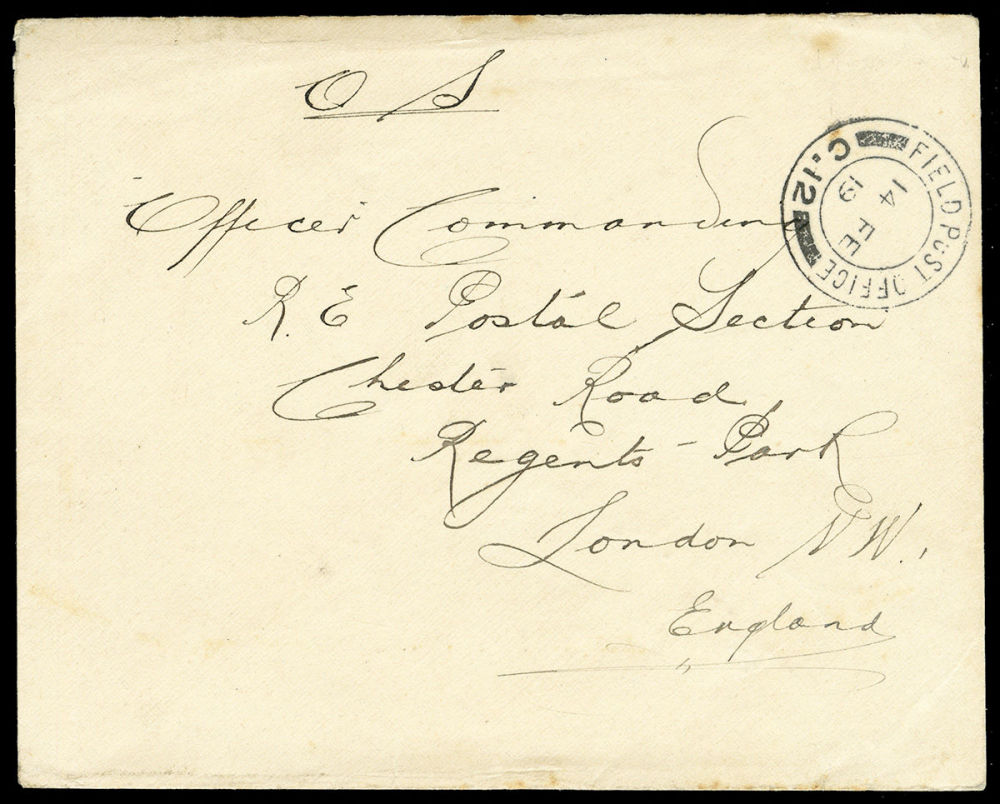 O S
Officer Commanding
R. E Postal Section
Chester Road,
Regents Park
London N W.,
England
FIELD POST OFFICE
C.12
14 FE
19